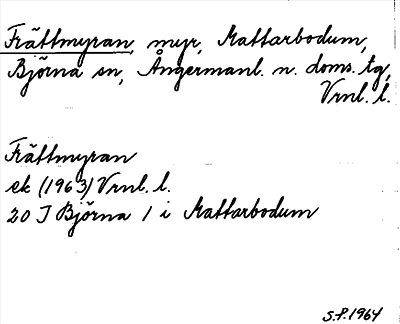 Frättmyran, myr, Mattarbodum,
Björna sn, Ångermanl. n. doms. tg,
Vrnl. l.
Frättmyran
ek (1963) Vrnl. l.
20 J Björna 1 i Mattarbodum
S.P. 1964